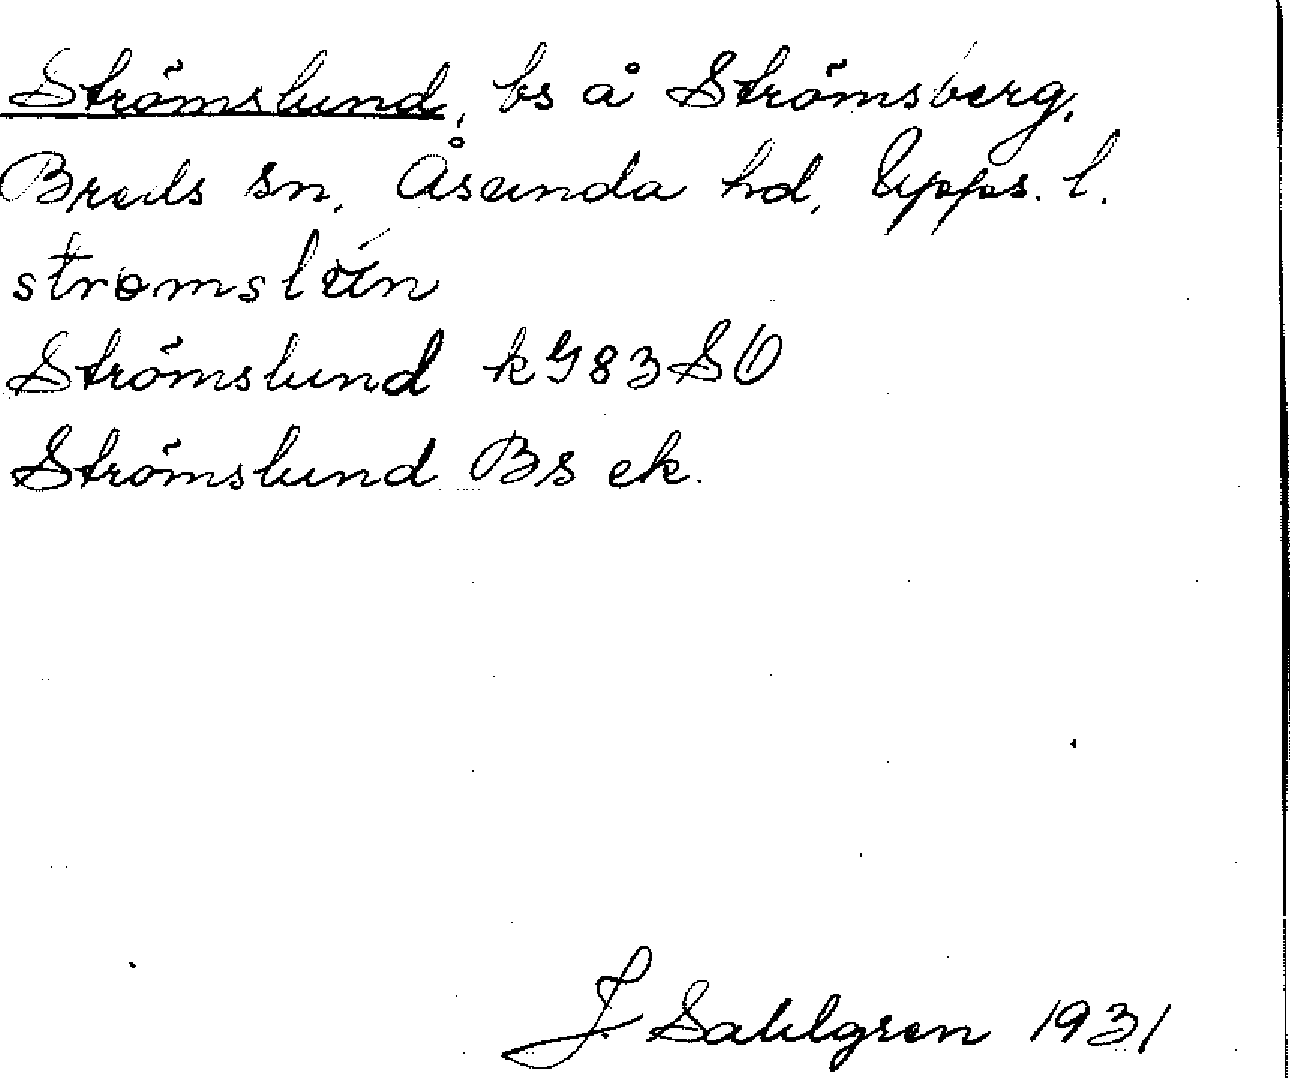 Strömslund, bs å Strömsberg,
Breds sn, Åsunda hd, Upps. l.
Strömslund k G83 SO
Strömslund Bs ek.
J Sahlgren 1931